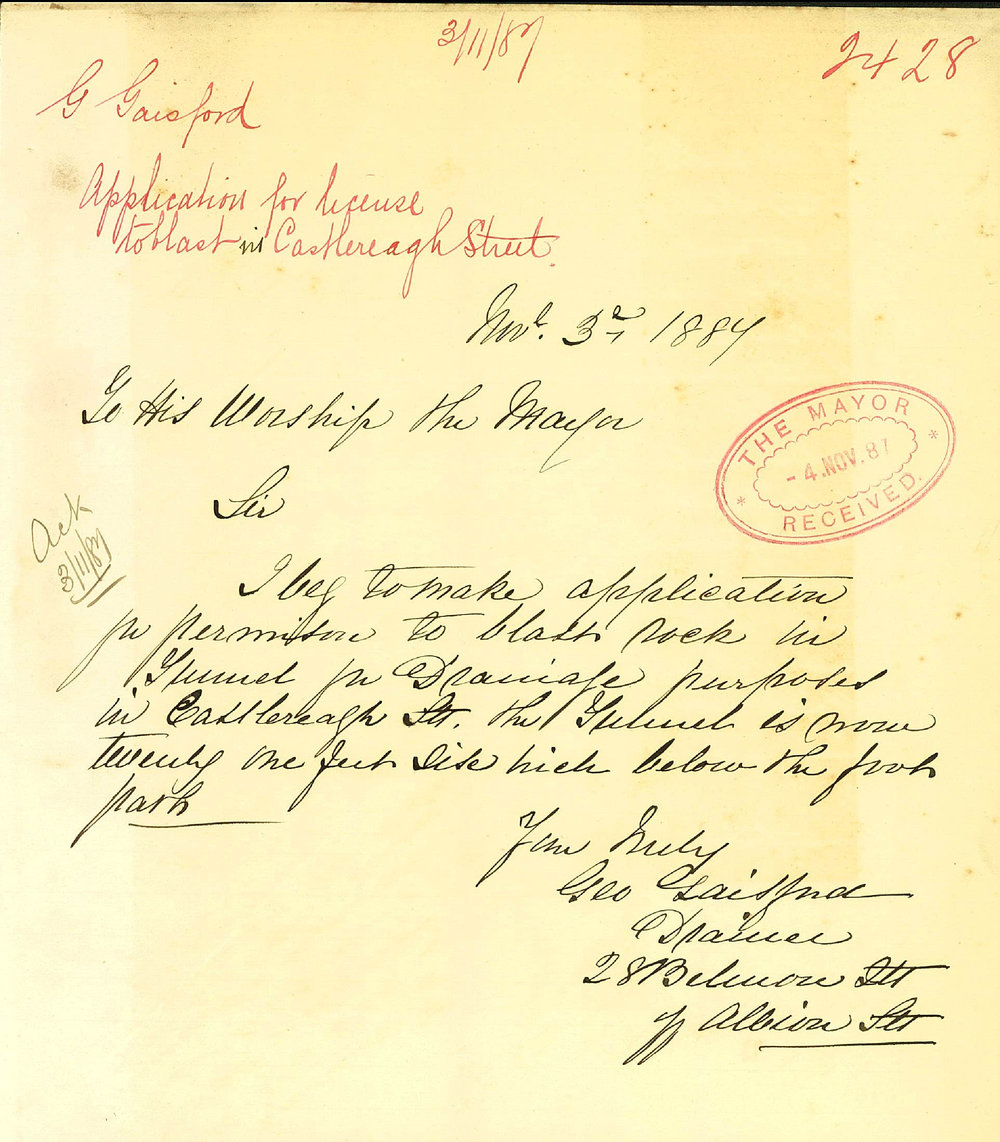 3/11/87
2428
G Gaisford
Application for license
to blast in Castlereagh Street.
Novr. 3rd 1887
To His Worship the Mayor
THE MAYOR
- 4. NOV. 87
RECEIVED.
Sir
Ack
3/11/87
I beg to make application
for permison to blast rock in
Tunnel for Drainage purposes
in Castlereagh Stt. the Tunnel is now
twenty one feet below the foot
path
Your truly
Geo Gaisford
Drainer
28 Belmore Stt
off Albion Stt